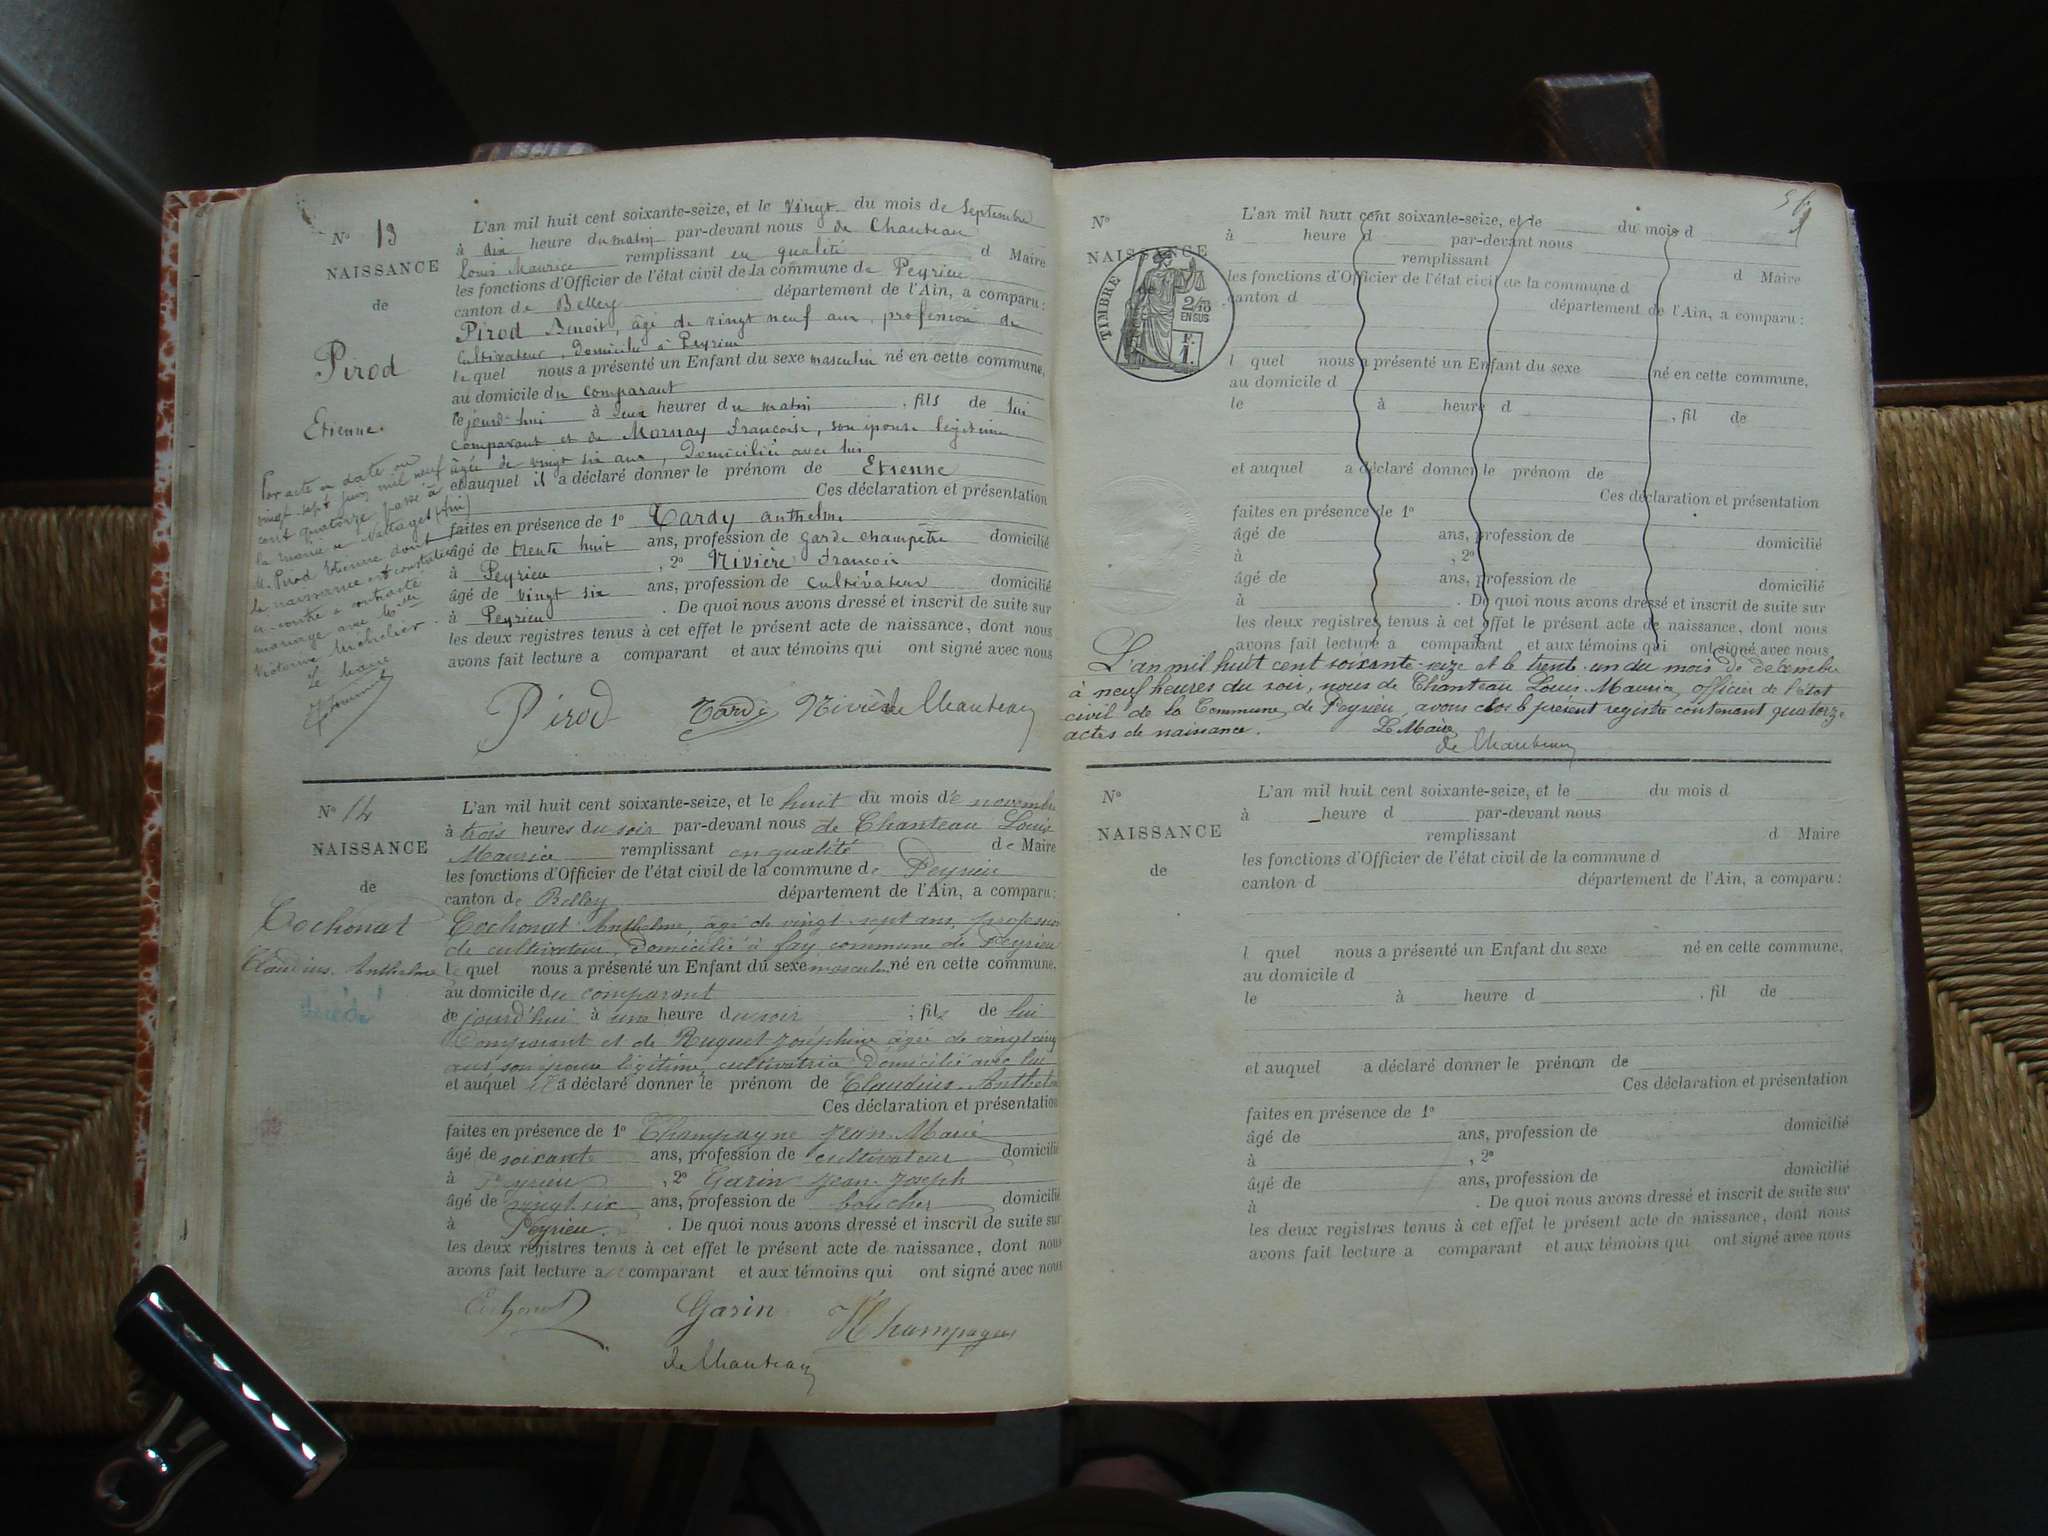 N° 13
NAISSANCE
de
Pirod
Etienne.
Par acte en date du
vingt-sept juin mil neuf
cent quatorze passé à
la mairie de Nattages (Ain)
M. Pirod Etienne dont
la naissance est constatée
ci-contre a contracté
mariage avec Melle
Victorine Michelier.
Le Maire
L'an mil huit cent soixante-seize, et le vingt du mois de Septembre
à dix heure du matin par-devant nous de Chanteau
Louis Maurice remplissant en qualité d Maire
les fonctions d'Officier de l'état civil de la commune de Peyrieu
canton de Belley département de l'Ain, a comparu :
Pirod Benoit, âgé de vingt neuf ans, profession de
cultivateur, domicilié à Peyrieu
le quel nous a présenté un Enfant du sexe masculin né en cette commune,
au domicile du comparant
cejourd'hui à deux heures du matin , fils de lui
comparant et de Mornay Françoise, son épouse légitime
âgée de vingt six ans, domiciliée avec lui
et auquel il a déclaré donner le prénom de Etienne
Ces déclaration et présentation
faites en présence de 1° Tardy anthelme
âgé de trente huit ans, profession de garde champêtre domicilié
à Peyrieu , 2° Rivière François
âgé de vingt six ans, profession de cultivateur domicilié
à Peyrieu . De quoi nous avons dressé et inscrit de suite sur
les deux registres tenus à cet effet le présent acte de naissance, dont nous
avons fait lecture a comparant et aux témoins qui ont signé avec nous
Pirod Tardi Rivière de Chanteau
N° 14
NAISSANCE
de
Cochonat
Claudius Anthelme
L'an mil huit cent soixante-seize, et le huit du mois de novembre
à trois heures du soir par-devant nous de Chanteau Louis
Maurice remplissant en qualité de Maire
les fonctions d'Officier de l'état civil de la commune de Peyrieu
canton de Belley département de l'Ain, a comparu :
Cochonat Anthelme, âgé de vingt sept ans, profession
de cultivateur, domicilié à fay commune de Peyrieu
le quel nous a présenté un Enfant du sexe masculin né en cette commune,
au domicile du comparant
ce jourd'hui à une heure du soir ; fils de lui
Comparant et de Ruguet Joséphine âgée de vingt cinq
ans son épouse légitime, cultivatrice domicilié avec lui
et auquel il a déclaré donner le prénom de Claudius Anthelme
Ces déclaration et présentation
faites en présence de 1° Champagne Jean-Marie
âgé de soixante ans, profession de cultivateur domicilié
à Peyrieu , 2° Garin Jean-Joseph
âgé de vingt six ans, profession de boucher domicilié
à Peyrieu . De quoi nous avons dressé et inscrit de suite sur
les deux registres tenus à cet effet le présent acte de naissance, dont nous
avons fait lecture au comparant et aux témoins qui ont signé avec nous
Cochonat Garin Champagne
de Chanteau
56
N°
NAISSANCE
de
TIMBRE
2/10
EN SUS
F.
1.
L'an mil huit cent soixante-seize, et le du mois d
à heure d par-devant nous
remplissant d Maire
les fonctions d'Officier de l'état civil de la commune d
canton d département de l'Ain, a comparu :
l quel nous a présenté un Enfant du sexe né en cette commune,
au domicile d
le à heure d , fil de
et auquel a déclaré donner le prénom de
Ces déclaration et présentation
faites en présence de 1°
âgé de ans, profession de domicilié
à , 2°
âgé de ans, profession de domicilié
à . De quoi nous avons dressé et inscrit de suite sur
les deux registres tenus à cet effet le présent acte de naissance, dont nous
avons fait lecture a comparant et aux témoins qui ont signé avec nous
L'an mil huit cent soixante-seize et le trente-un du mois de décembre
à neuf heures du soir, nous de Chanteau Louis-Maurice, officier de l'état
civil de la Commune de Peyrieu, avons clos le présent registre contenant quatorze
actes de naissance. Le Maire
de Chanteau
N°
NAISSANCE
de
L'an mil huit cent soixante-seize, et le du mois d
à heure d par-devant nous
remplissant d Maire
les fonctions d'Officier de l'état civil de la commune d
canton d département de l'Ain, a comparu :
l quel nous a présenté un Enfant du sexe né en cette commune,
au domicile d
le à heure d , fil de
et auquel a déclaré donner le prénom de
Ces déclaration et présentation
faites en présence de 1°
âgé de ans, profession de domicilié
à , 2°
âgé de ans, profession de domicilié
à . De quoi nous avons dressé et inscrit de suite sur
les deux registres tenus à cet effet le présent acte de naissance, dont nous
avons fait lecture a comparant et aux témoins qui ont signé avec nous